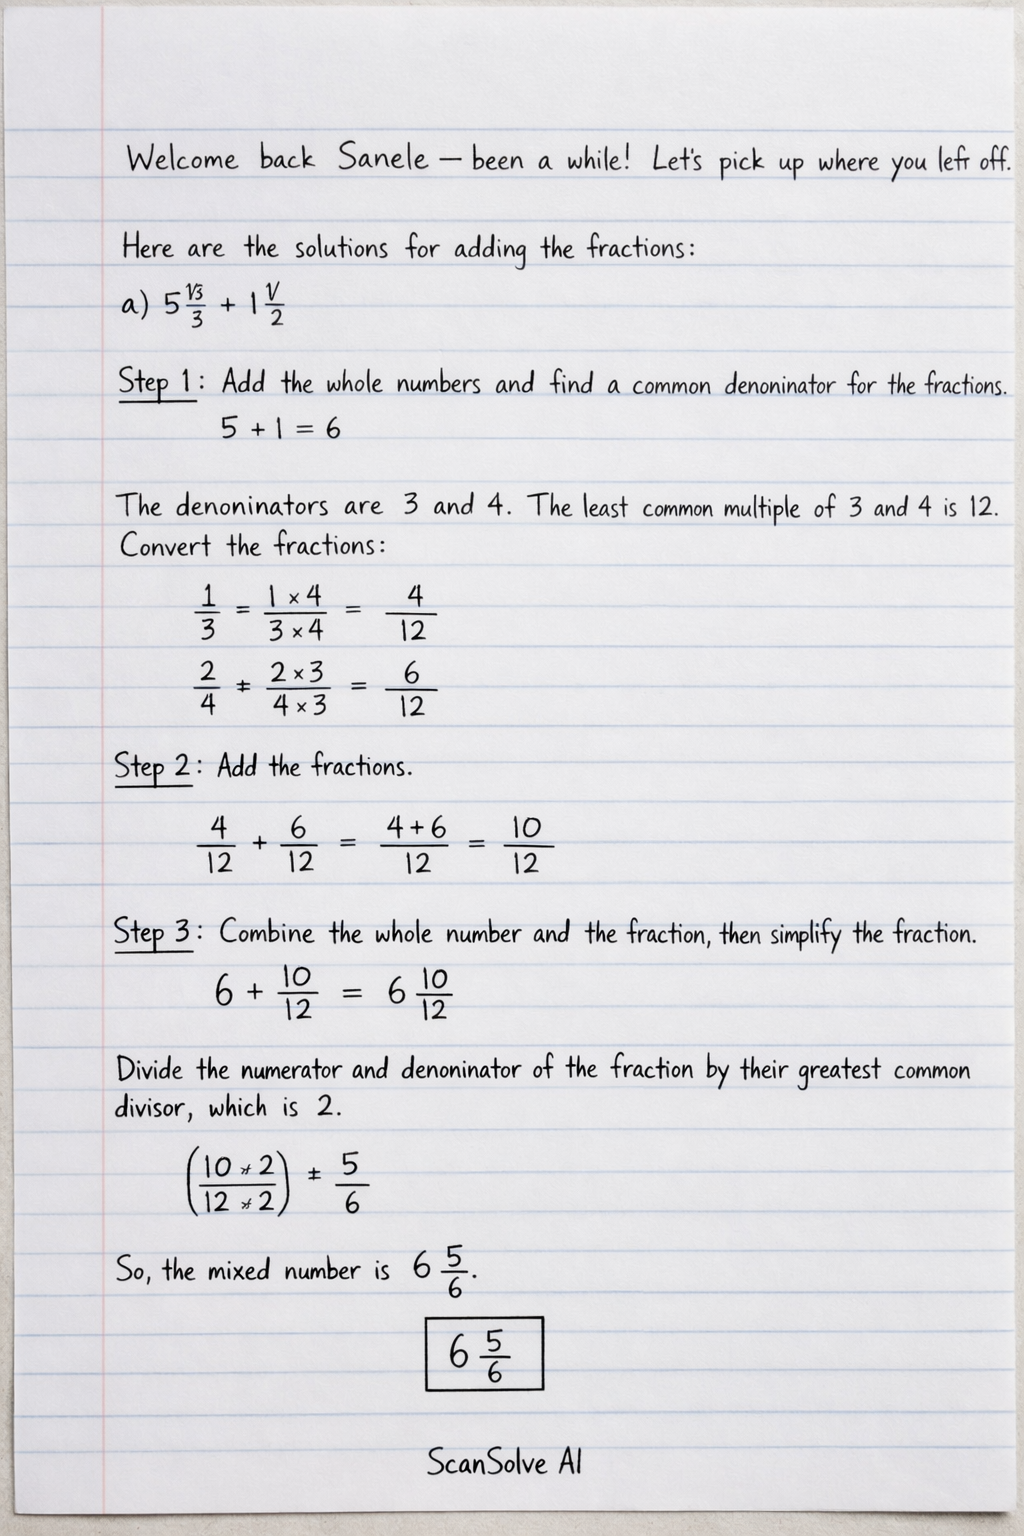 Welcome back Sanele — been a while! Let's pick up where you left off.
Here are the solutions for adding the fractions:
a) 5 √3/3 + 1 √/2
Step 1: Add the whole numbers and find a common denoninator for the fractions.
5 + 1 = 6
The denoninators are 3 and 4. The least common multiple of 3 and 4 is 12.
Convert the fractions:
1/3 = (1 × 4)/(3 × 4) = 4/12
2/4 ≠ (2 × 3)/(4 × 3) = 6/12
Step 2: Add the fractions.
4/12 + 6/12 = (4 + 6)/12 = 10/12
Step 3: Combine the whole number and the fraction, then simplify the fraction.
6 + 10/12 = 6 10/12
Divide the numerator and denoninator of the fraction by their greatest common
divisor, which is 2.
(10 2/12 2) 5/6
So, the mixed number is 6 5/6.
6 5/6
ScanSolve AI